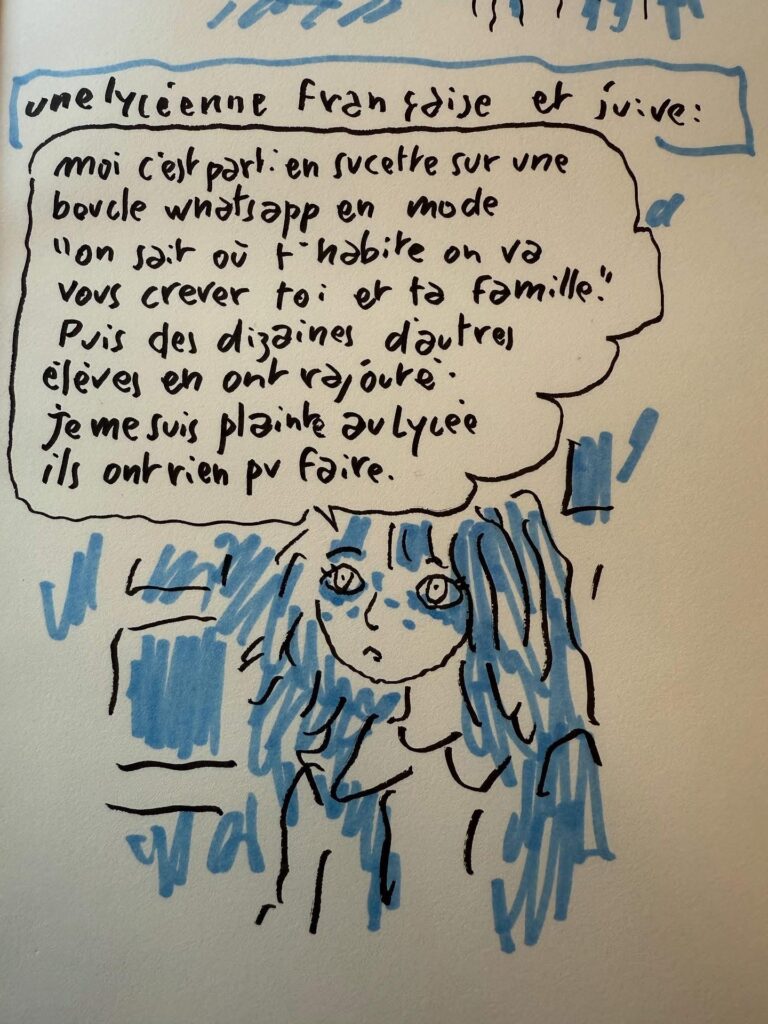 une lycéenne française et juive:
moi c'est parti en sucette sur une
boucle whatsapp en mode
"on sait où t'habite on va
vous crever toi et ta famille."
Puis des dizaines d'autres
élèves en ont rajouté.
je me suis plainte au lycée
ils ont rien pu faire.